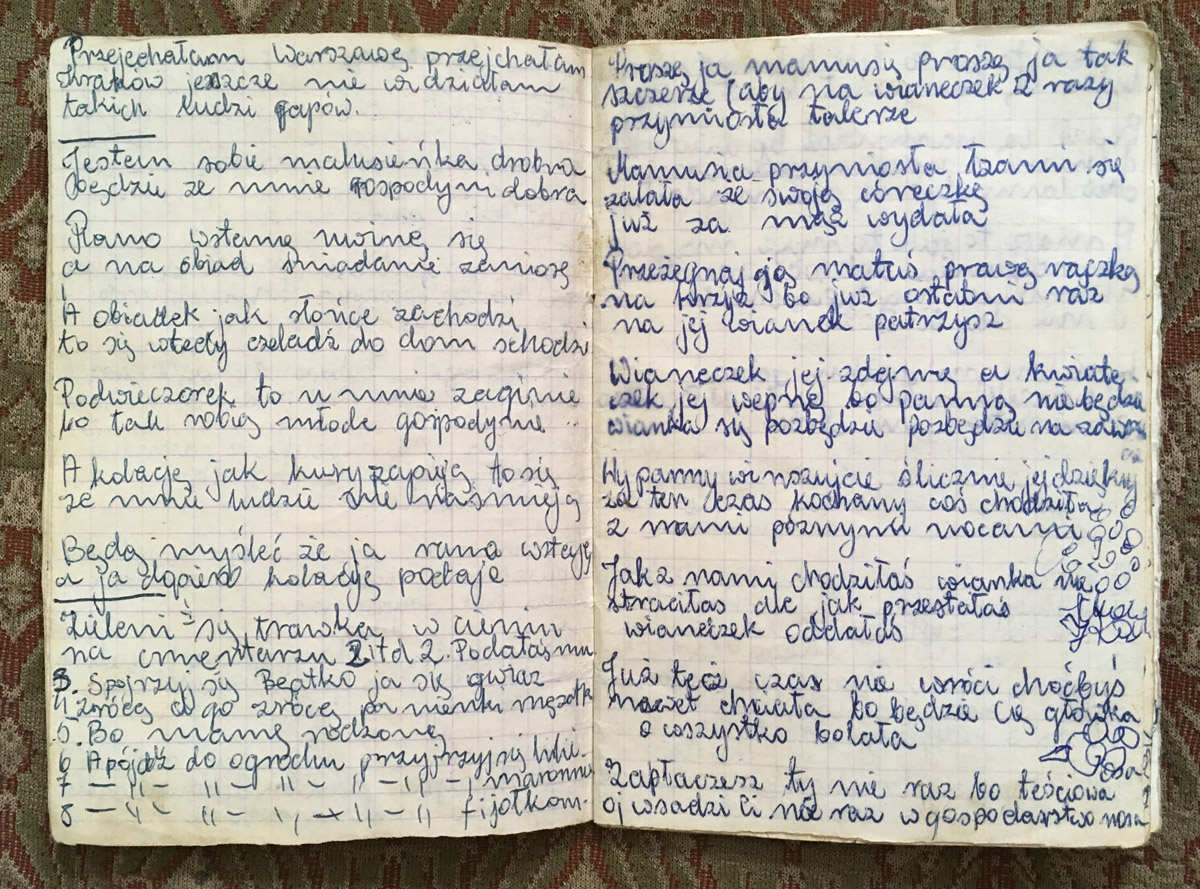 Przejechałam Warszawę przejchałam
Kraków jeszcze nie widziałam
takich ludzi gapów.
Jestem sobie malusieńka drobna
będzie ze mnie gospodyni dobra
Rano wstanę uwinę się
a na obiad śniadanie zaniosę
A obiadek jak słońce zachodzi
to się wtedy czeladź do dom schodzi
Podwieczorek to u mnie zaginie
bo tak robią młode gospodynie ..
A kolację jak kury zapieją to się
ze mnie ludzie nie naśmieją
Będą myśleć że ja rano wstaję
a ja dopiero kolację podaję
Zieleni się trawka w cieniu
na cmentarzu 2 itd 2. Podałaś mu
3. Spojrzyj się Beatko ja się gwiaz
4 zrócą cigo zrócą panienki mężatk
5. Bo mamę rodzoną
6 A pójdź do ogrodu przyjrzyj się lilii-
7 — " — " — " — " — maronna
8 — " — " — " — " fijołkom-
Proszę ja mamusię proszę ja tak
szczerze (aby na wianeczek 2 razy
przyniosła talerze
Mamusia przyniosła łzami się
zalała ze swoją córeczkę
już za mąż wydała
Przeżegnaj ją matuś prawą rączką
na krzyż bo już ostatni raz
na jej wianek patrzysz
Wianeczek jej zdejmę a kwiate
czek jej wepnę bo panną nie będzie
wianka się pozbędzie pozbędzie na zawsze
Wy panny winszujcie ślicznie jej dziękuj
za ten czas kochany coś chodziła
z nami późnymi nocami
Jak z nami chodziłaś wianka nie
straciłas ale jak przestałaś
wianeczek oddałaś
Już tęż czas nie wróci choćbyś
nawet chciała bo będzie cię główka
o wszystko bolała
Zapłaczesz ty nie raz bo teściowa
oj wsadzi ci nie raz w gospodarstwo nosa